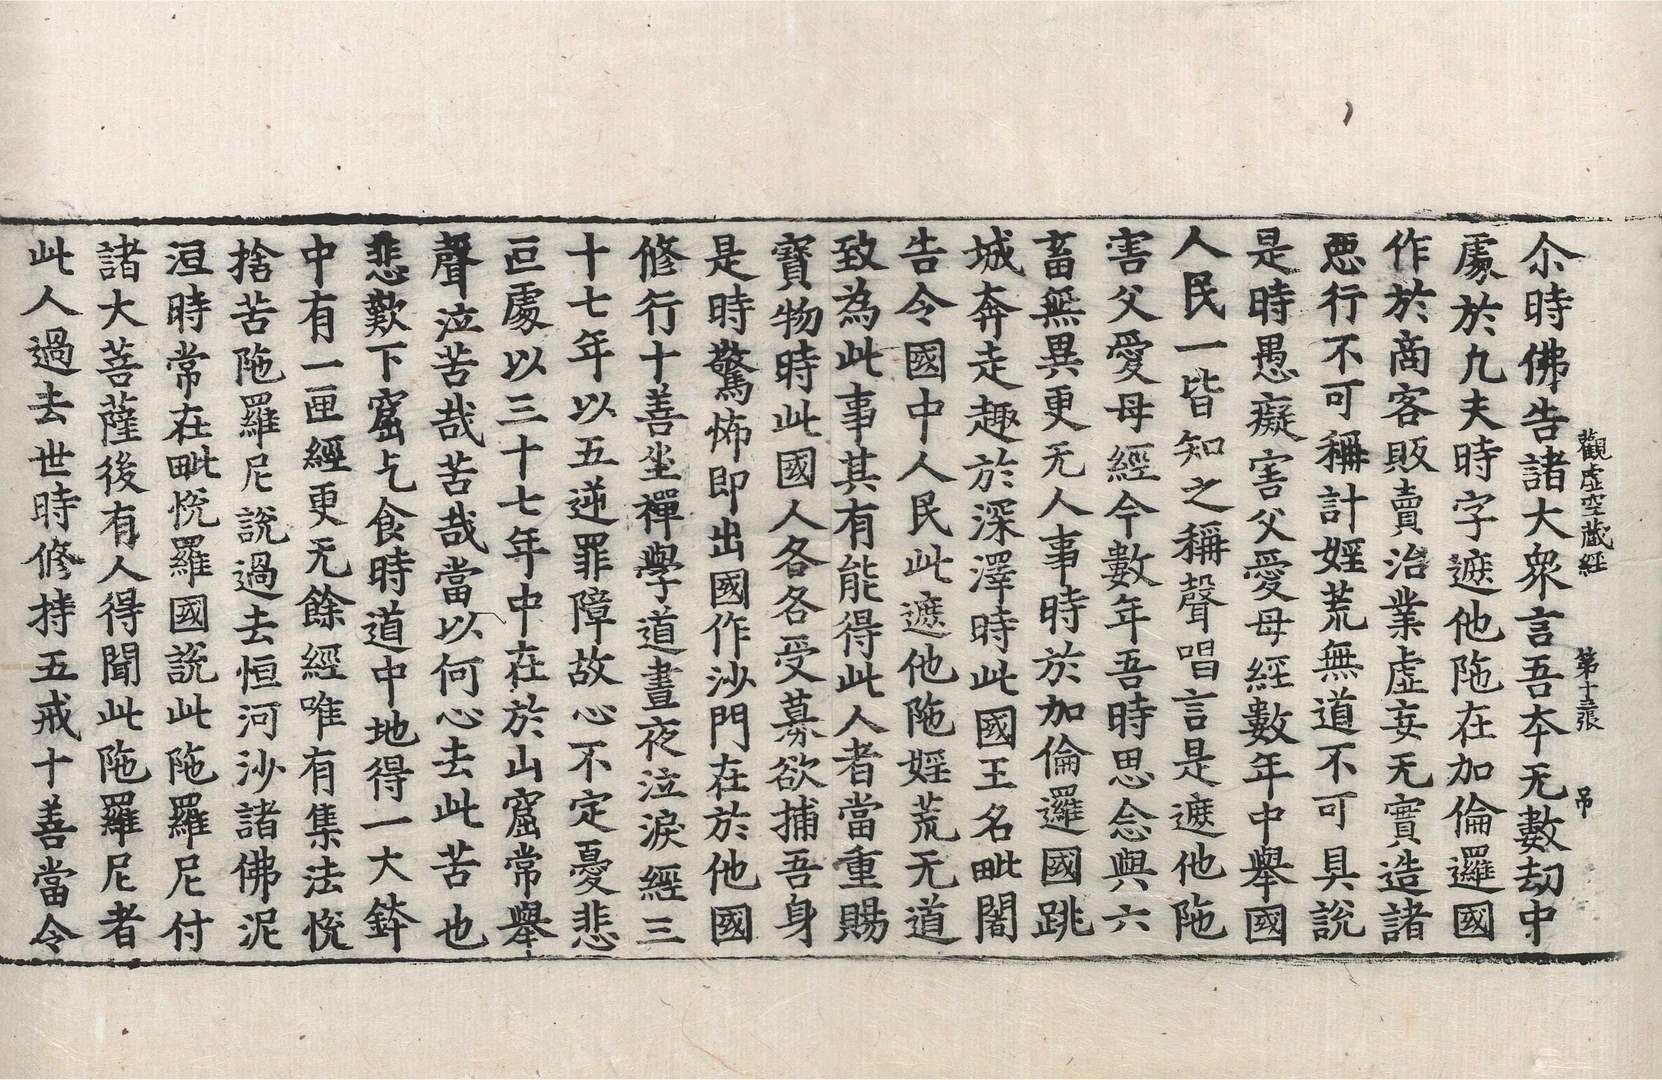 觀虛空藏經 第十三張 吊
尒時佛告諸大衆言吾本无數劫中
處於凢夫時字遮他陁在加倫邏國
作於商客販賣治業虛妄无實造諸
惡行不可稱計婬荒無道不可具說
是時愚癡害父愛母經數年中舉國
人民一皆知之稱聲唱言是遮他陁
害父愛母經今數年吾時思念與六
畜無異更无人事時於加倫邏國跳
城奔走趣於深澤時此國王名毗闍
告令國中人民此遮他陁婬荒无道
致為此事其有能得此人者當重賜
寶物時此國人各各受募欲捕吾身
是時驚怖即出國作沙門在於他國
修行十善坐禪學道晝夜泣淚經三
十七年以五逆罪障故心不定憂悲
叵處以三十七年中在於山窟常舉
聲泣苦哉苦哉當以何心去此苦也
悲歎下窟乞食時道中地得一大鉢
中有一匣經更无餘經唯有集法悅
捨苦陁羅尼說過去恒河沙諸佛泥
洹時常在毗悅羅國說此陁羅尼付
諸大菩薩後有人得聞此陁羅尼者
此人過去世時修持五戒十善當令